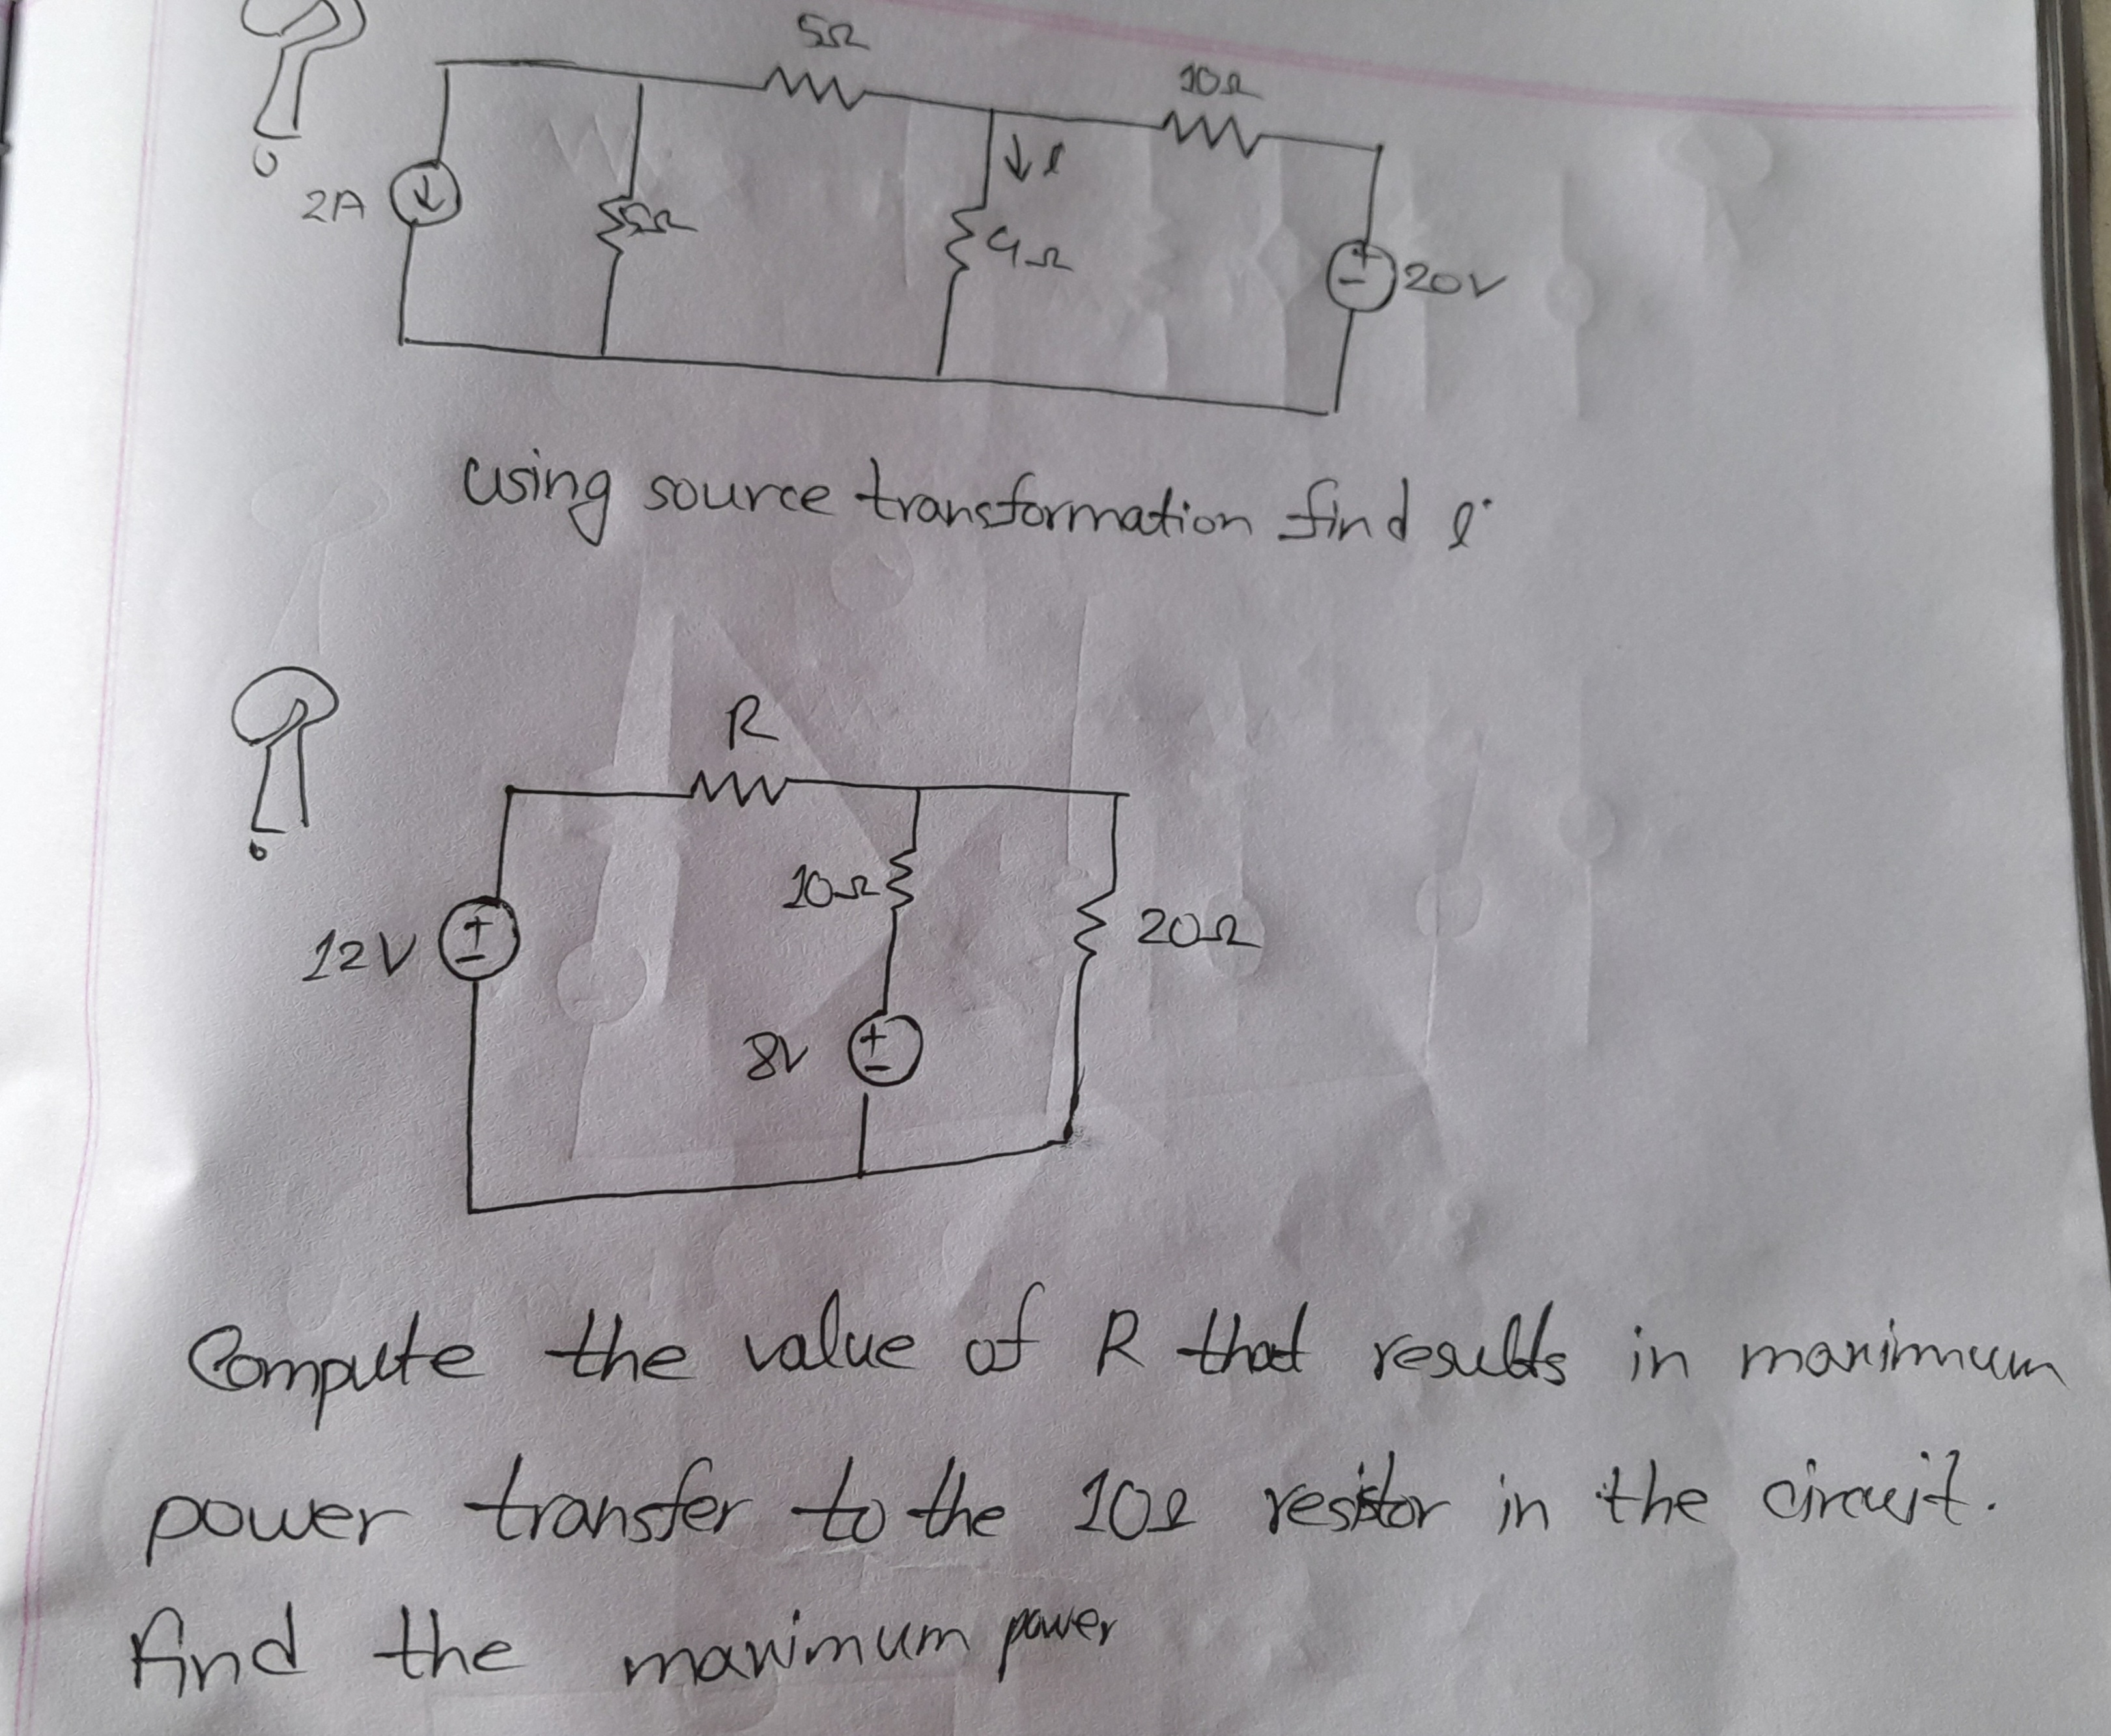 5Ω
10Ω
↓ i
2A
5Ω
4Ω
+
-
20V
using source transformation find i
R
10Ω
20Ω
12V
+
-
8V
+
-
Compute the value of R that results in maximum
power transfer to the 10Ω resistor in the circuit.
find the maximum power